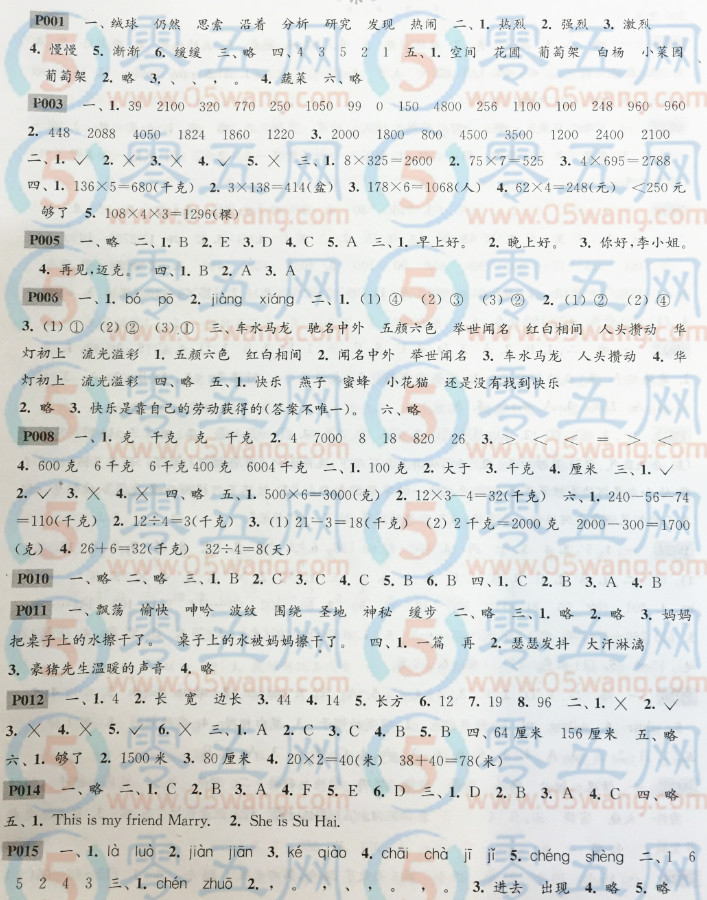 P001 一、绒球 仍然 思索 沿着 分析 研究 发现 热闹 二、1. 热烈 2. 强烈 3. 激烈
4. 慢慢 5. 渐渐 6. 缓缓 三、略 四、4 3 5 2 1 五、1. 空间 花圃 葡萄架 白杨 小菜园
葡萄架 2. 略 3. 、 、 , 。 4. 蔬菜 六、略
P003 一、1. 39 2100 320 770 250 1050 99 0 150 4800 256 1100 100 248 960 960
2. 448 2088 4050 1824 1860 1220 3. 2000 1800 800 4500 3500 1200 2400 2100
二、1. ✓ 2. × 3. × 4. ✓ 5. × 三、1. 8×325=2600 2. 75×7=525 3. 4×695=2788
四、1. 136×5=680(千克) 2. 3×138=414(盆) 3. 178×6=1068(人) 4. 62×4=248(元) <250元
够了 5. 108×4×3=1296(棵)
P005 一、略 二、1. B 2. E 3. D 4. C 5. A 三、1. 早上好。 2. 晚上好。 3. 你好,李小姐。
4. 再见,迈克。 四、1. B 2. A 3. A
P006 一、1. bó pō 2. jiàng xiáng 二、1. (1) ④ (2) ③ (3) ② 2. (1) ② (2) ④
3. (1) ① (2) ② (3) ① 三、车水马龙 驰名中外 五颜六色 举世闻名 红白相间 人头攒动 华
灯初上 流光溢彩 1. 五颜六色 红白相间 2. 闻名中外 举世闻名 3. 车水马龙 人头攒动 4. 华
灯初上 流光溢彩 四、略 五、1. 快乐 燕子 蜜蜂 小花猫 还是没有找到快乐
2. 略 3. 快乐是靠自己的劳动获得的(答案不唯一)。 六、略
P008 一、1. 克 千克 克 千克 2. 4 7000 8 18 820 26 3. > < < = > <
4. 600克 6千克 6千克400克 6004千克 二、1. 100克 2. 大于 3. 千克 4. 厘米 三、1. ✓
2. ✓ 3. × 4. × 四、略 五、1. 500×6=3000(克) 2. 12×3-4=32(千克) 六、1. 240-56-74
=110(千克) 2. 12÷4=3(千克) 3. (1) 21-3=18(千克) (2) 2千克=2000克 2000-300=1700
(克) 4. 26+6=32(千克) 32÷4=8(天)
P010 一、略 二、略 三、1. B 2. C 3. C 4. C 5. B 6. B 四、1. C 2. B 3. A 4. B
P011 一、飘荡 愉快 呻吟 波纹 围绕 圣地 神秘 缓步 二、略 三、1. 略 2. 略 3. 妈妈
把桌子上的水擦干了。 桌子上的水被妈妈擦干了。 四、1. 一篇 再 2. 瑟瑟发抖 大汗淋漓
3. 豪猪先生温暖的声音 4. 略
P012 一、1. 4 2. 长 宽 边长 3. 44 4. 14 5. 长方 6. 12 7. 19 8. 96 二、1. × 2. ✓
3. × 4. × 5. ✓ 6. × 三、1. A 2. C 3. C 4. B 5. B 四、64厘米 156厘米 五、略
六、1. 够了 2. 1500米 3. 80厘米 4. 20×2=40(米) 38+40=78(米)
P014 一、略 二、1. C 2. B 3. A 4. F 5. E 6. D 三、1. D 2. B 3. A 4. C 四、略
五、1. This is my friend Marry. 2. She is Su Hai.
P015 一、1. là luò 2. jiàn jiān 3. ké qiào 4. chāi chà jī jǐ 5. chéng shèng 二、1 6
5 2 4 3 三、1. chén zhuō 2. , 。 , 、 , 。 , 。 3. 进去 出现 4. 略 5. 略